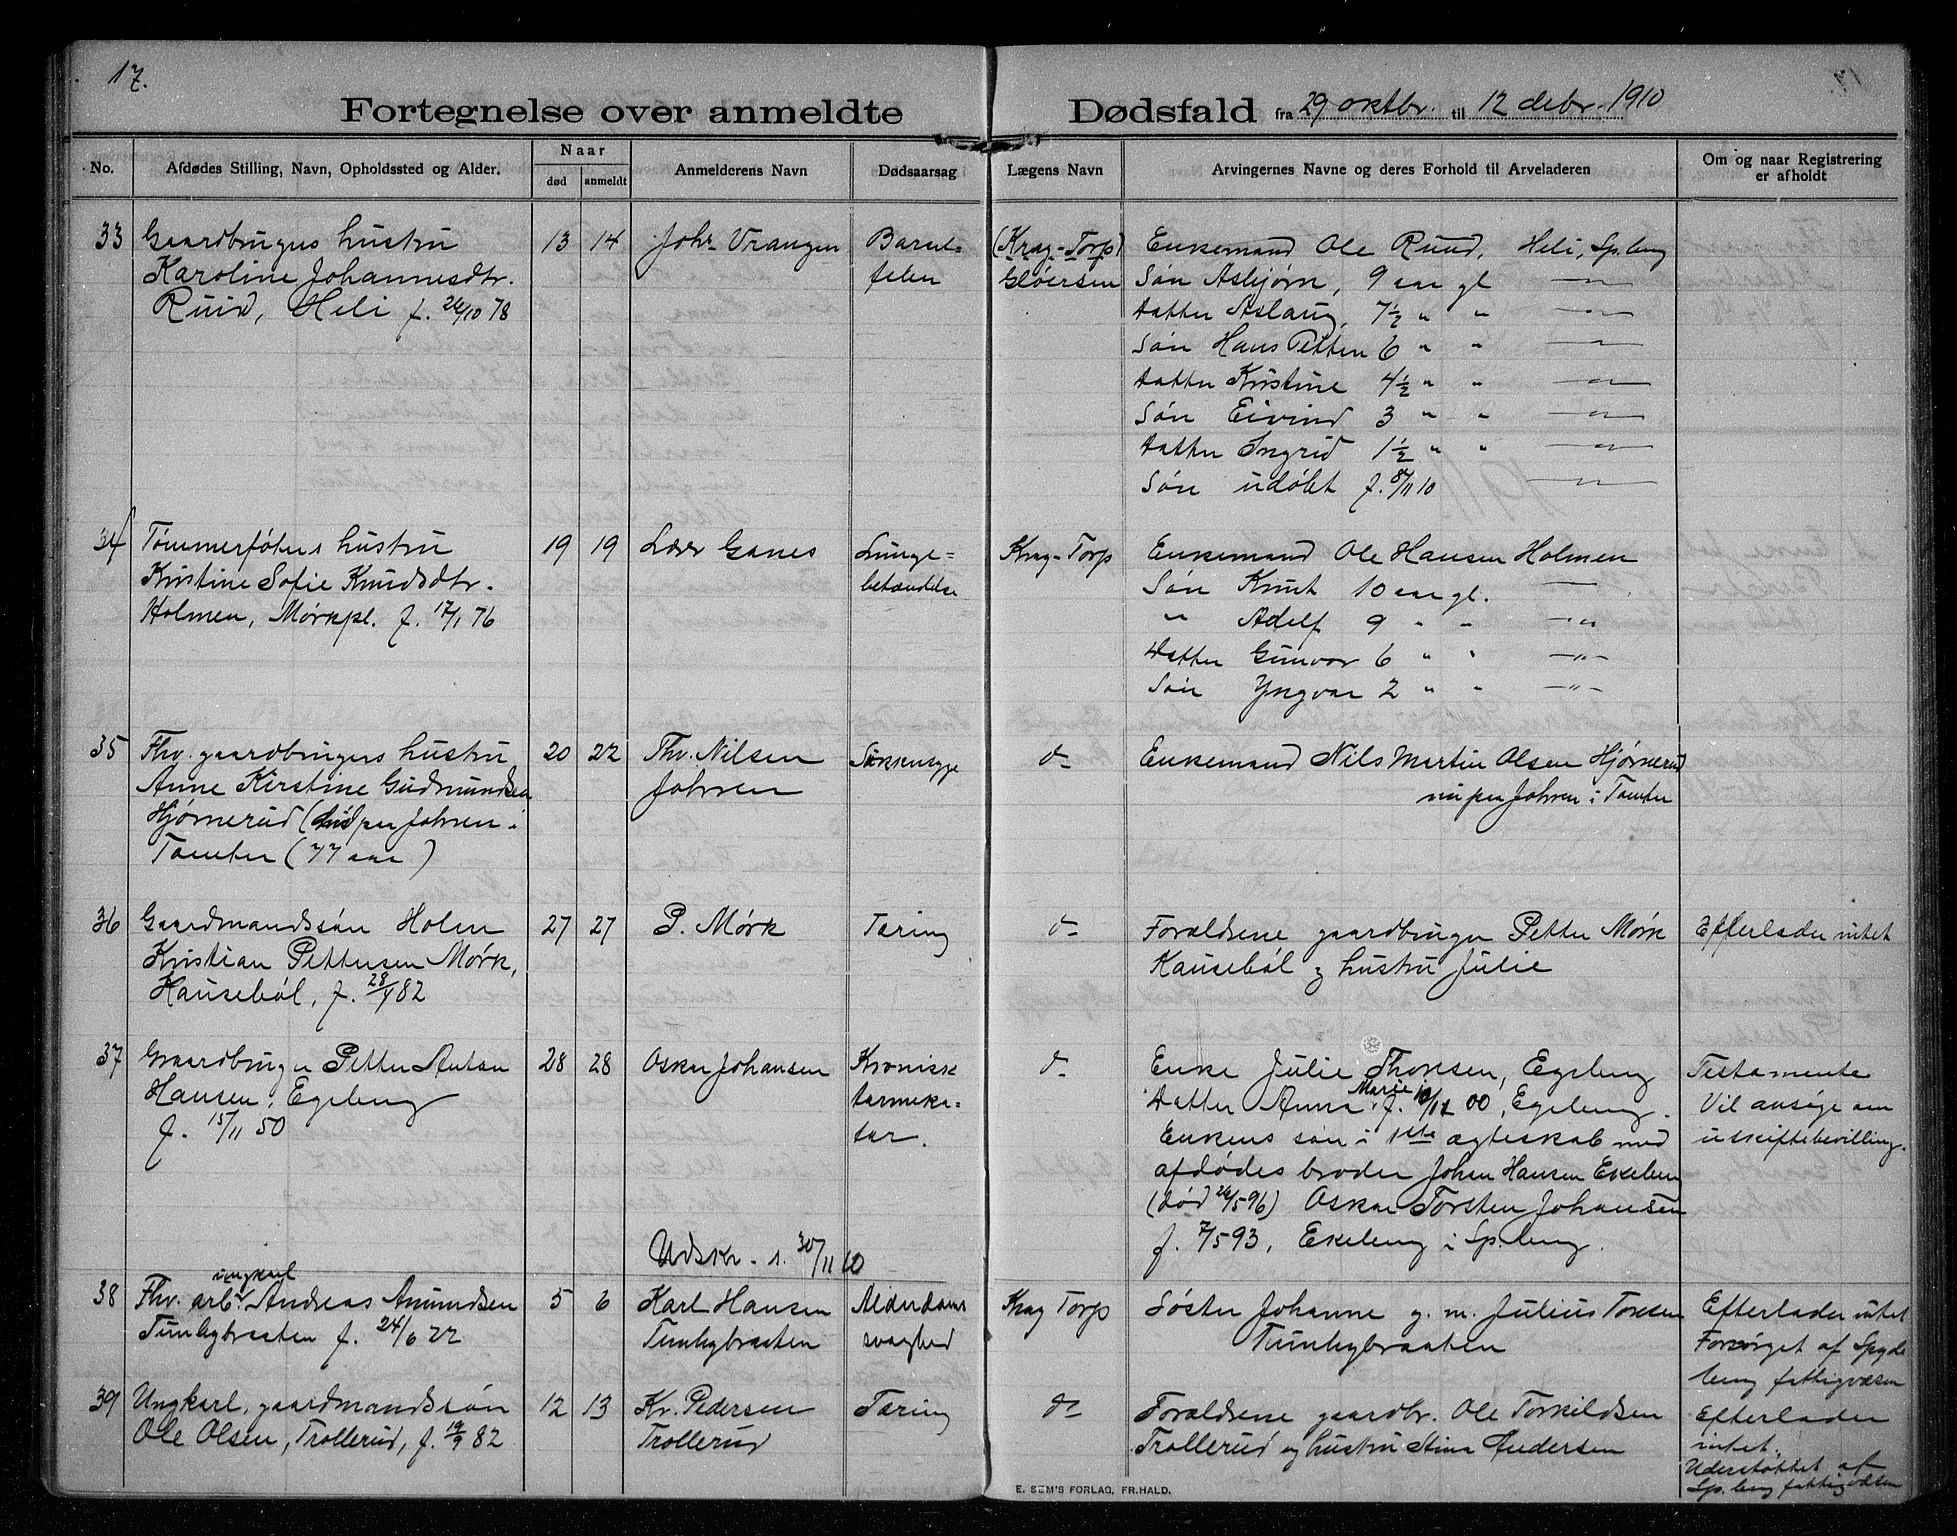 17.
Fortegnelse over anmeldte Dødsfald fra 29 oktbr. til 12 debr. 1910
No. Afdødes Stilling, Navn, Opholdssted og Alder. Naar død anmeldt Anmelderens Navn Dødsaarsag Lægens Navn Arvingernes Navne og deres Forhold til Arveladeren Om og naar Registrering er afholdt
33 Gaardbrugers hustru 13 14 Johs Vrangen Barsel- (Krag-Torp) Enkemand Ole Ruud, Heli, Sp.berg
Karoline Johannesdtr. feber Gløersen Søn Asbjørn, 9 aar gl —"—
Ruud, Heli f. 26/10 78 Datter Aslaug, 7½ " " —"—
Søn Hans Petter 6 " " —"—
Datter Kristine 4½ " " —"—
Søn Eivind 3 " " —"—
Datter Ingrid 1½ " " —"—
Søn udøbt f. 8/11 10 —"—
34 Tømmerfløters hustru 19 19 Lærer Ganes Lunge= Krag-Torp Enkemand Ole Hansen Holmen
Kristine Sofie Knudsdtr. betændelse Søn Knut 10 aar gl. —"—
Holmen, Mørkpl. f. 17/1 76 " Adolf 9 " " —"—
Datter Gunvor 6 " " —"—
Søn Yngvar 2 " " —"—
35 Fhv. gaardbrugers hustru 20 22 Thv. Nilsen Sukkersyge do Enkemand Nils Martin Olsen Hjørnerud
Anne Kirstine Gudmundsen Johren nu paa Johren i Tomter
Hjørnerud ( paa Johren i
Tomter (77 aar)
36 Gaardmandssøn Holm 27 27 P. Mørk Tæring do Forældrene gaardbruger Petter Mørk Efterlader intet
Kristian Pettersen Mørk, Kausebøl og hustru Julie
Kausebøl, f. 28/ 82
37 Gaardbruger Petter Anton 28 28 Oskar Johansen Kronisk do Enke Julie Thoresen, Egeberg Testamente
Hansen, Egeberg tarmka- Datter Anna Marie f. 00, Egeberg. Vil ansøge om
f. 15/11 50 tar. Enkens søn i 1ste ægteskab med uskiftebevilling.
afdødes broder Johan Hansen Ekeberg
(død 26/5 96) Oskar Torsten Johansen
f. 7/5 93, Ekeberg i Sp.berg.
Udskr. s. 30/11 10
38 Fhv. arb. ungkarl Andreas Amundsen 5 6 Karl Hansen Alderdoms Krag Torp Søster Johanne g. m. Julius Toresen Efterlader intet
Tunhybraaten f. 24/6 22 Tunhybraaten svaghed Tunhybraaten Forsørget af Spyde
berg fattigvæsen
39 Ungkarl, gaardmandssøn 12 13 Kr. Pedersen Tæring do Forældrene gaardbr. Ole Torkildsen Efterlader
Ole Olsen, Trollerud, f. 19/9 82 Trollerud Trollerud og hustru Stina Andersen intet.
Understøttet af
Sp.berg fattigvæsen
E. SEM'S FORLAG, FR.HALD.